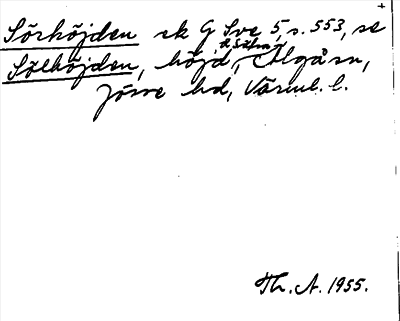 Sörhöjden sk G Sve 5, s. 553, se
Sölhöjden, höjd, Älgå sn,
Jösse hd, Värml. l.
Th. A. 1955.